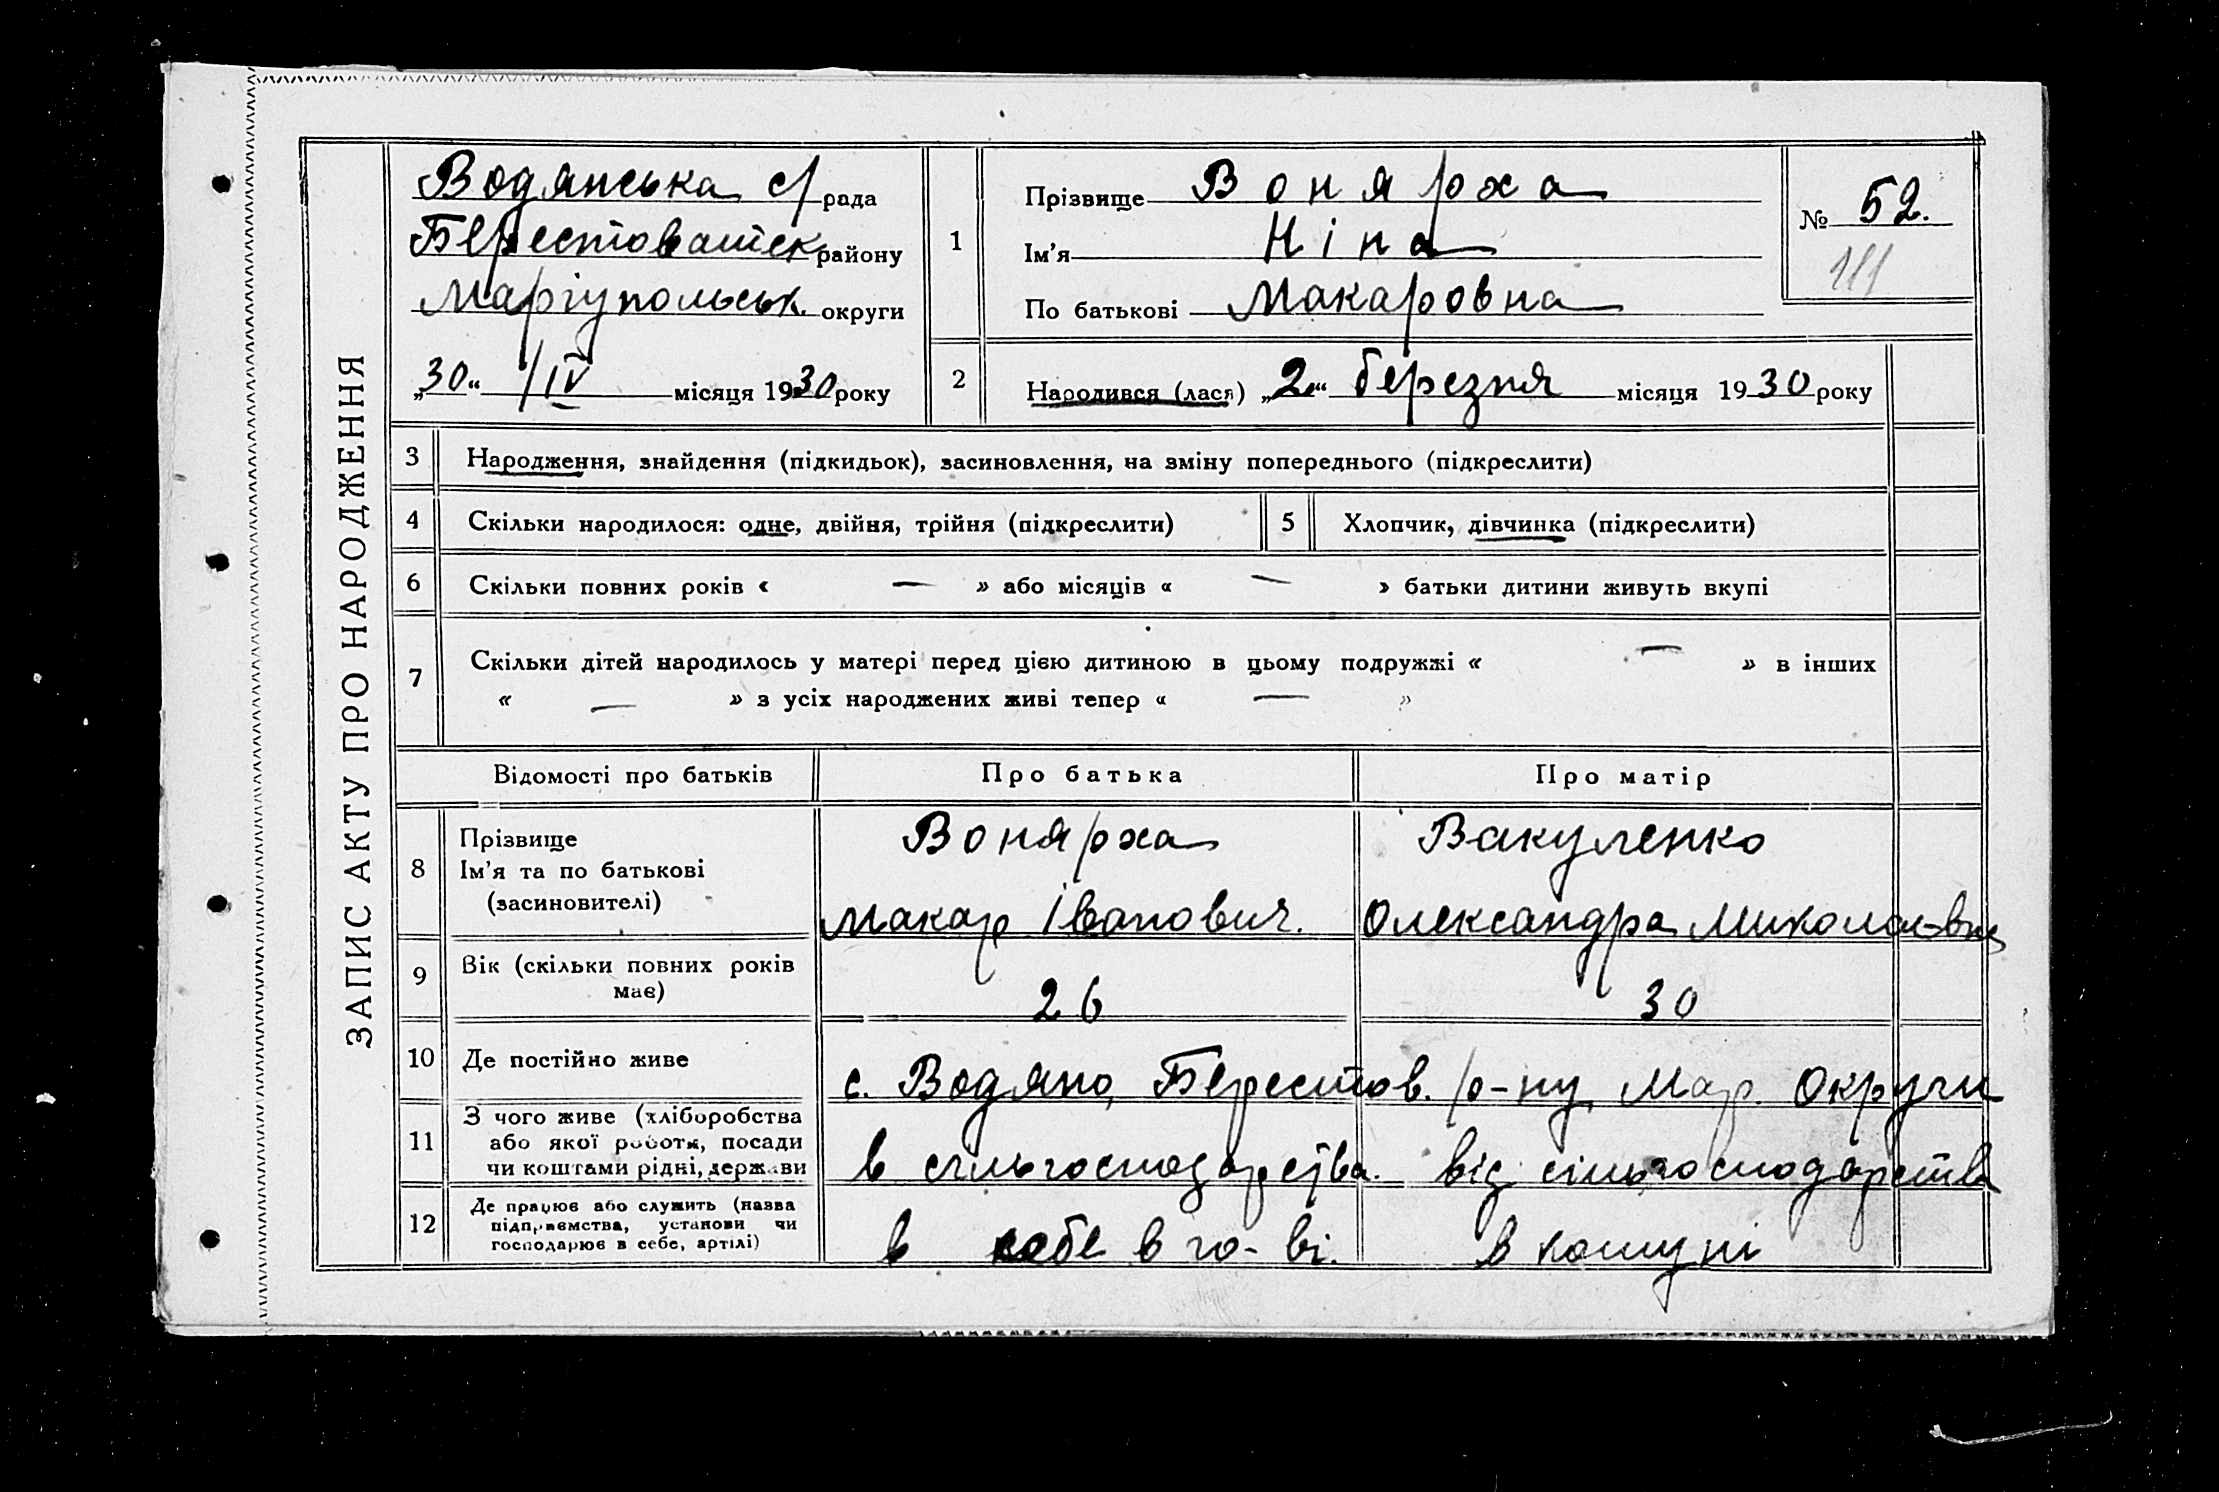 ЗАПИС АКТУ ПРО НАРОДЖЕННЯ
Водянська с/рада
Берестоват району
Маріупольськ. округи
„30“ /IV місяця 1930 року
1
Прізвище Вонярха
Ім’я Ніна
По батькові Макаровна
№ 52.
111
2
Народився (лася) „2“ березня місяця 1930 року
3 Народження, знайдення (підкидьок), засиновлення, на зміну попереднього (підкреслити)
4 Скільки народилося: одне, двійня, трійня (підкреслити)
5 Хлопчик, дівчинка (підкреслити)
6 Скільки повних років « — » або місяців « — » батьки дитини живуть вкупі
7 Скільки дітей народилось у матері перед цією дитиною в цьому подружжі « — » в інших
« — » з усіх народжених живі тепер « — »
Відомості про батьків Про батька Про матір
8
Прізвище
Ім’я та по батькові
(засиновителі)
Вонярха
Макар Іванович.
Вакуленко
Олександра
9
Вік (скільки повних років
має)
26
30
10 Де постійно живе
с. Водяно, Берестов. р-ну Мар. Округи
11
З чого живе (хліборобства
або якої роботи, посади
чи коштами рідні, держави
в сільгосподарства.
від сільгосподарства
12
Де працює або служить (назва
підприємства, установи чи
господарює в себе, артілі)
в себе в го-ві.
в комуні